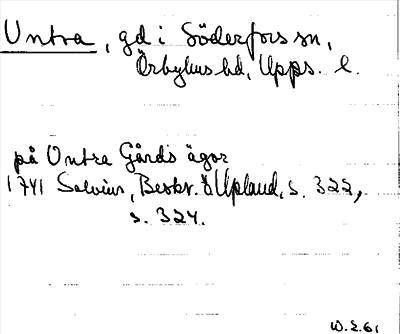 Untra, gd i Söderfors sn,
Örbyhus hd, Upps. l.
på Untra Gårds ägor
1741 Salvius, Beskr. ö Upland, s. 322,
s. 324.
W.E. 61